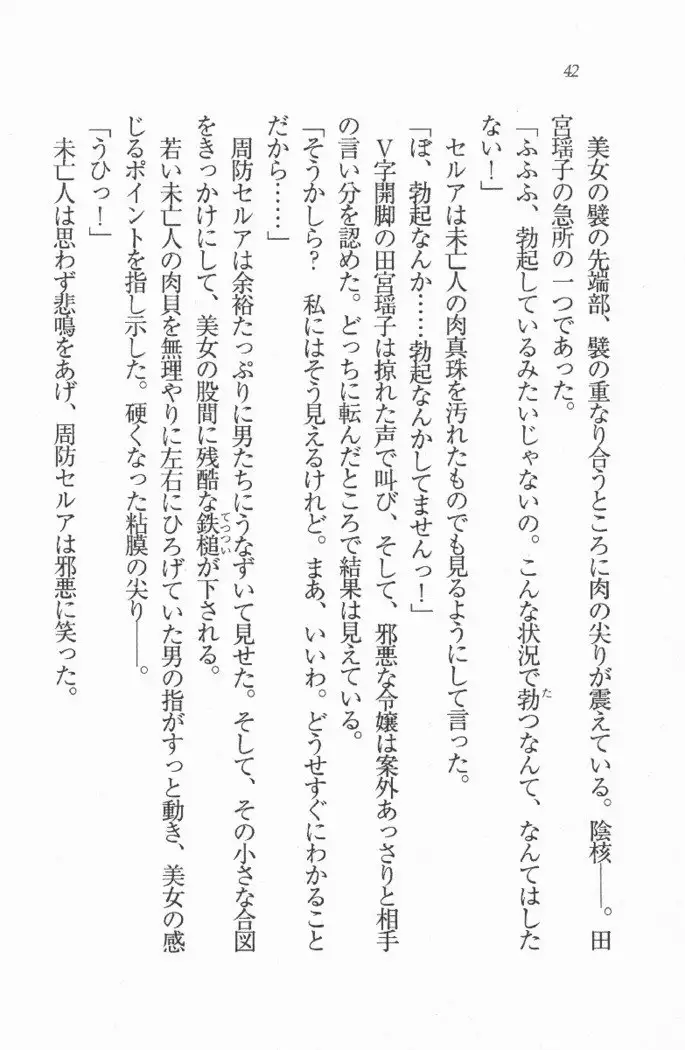 42
美女の襞の先端部、襞の重なり合うところに肉の尖りが震えている。陰核――。田
宮瑶子の急所の一つであった。
「ふふふ、勃起しているみたいじゃないの。こんな状況で勃つなんて、なんてはした
ない！」
セルアは未亡人の肉真珠を汚れたものでも見るようにして言った。
「ぼ、勃起なんか……勃起なんかしてませんっ！」
Ｖ字開脚の田宮瑶子は掠れた声で叫び、そして、邪悪な令嬢は案外あっさりと相手
の言い分を認めた。どっちに転んだところで結果は見えている。
「そうかしら？　私にはそう見えるけれど。まあ、いいわ。どうせすぐにわかること
だから……」
周防セルアは余裕たっぷりに男たちにうなずいて見せた。そして、その小さな合図
をきっかけにして、美女の股間に残酷な鉄槌が下される。
若い未亡人の肉貝を無理やりに左右にひろげていた男の指がすっと動き、美女の感
じるポイントを指し示した。硬くなった粘膜の尖り――。
「うひっ！」
未亡人は思わず悲鳴をあげ、周防セルアは邪悪に笑った。